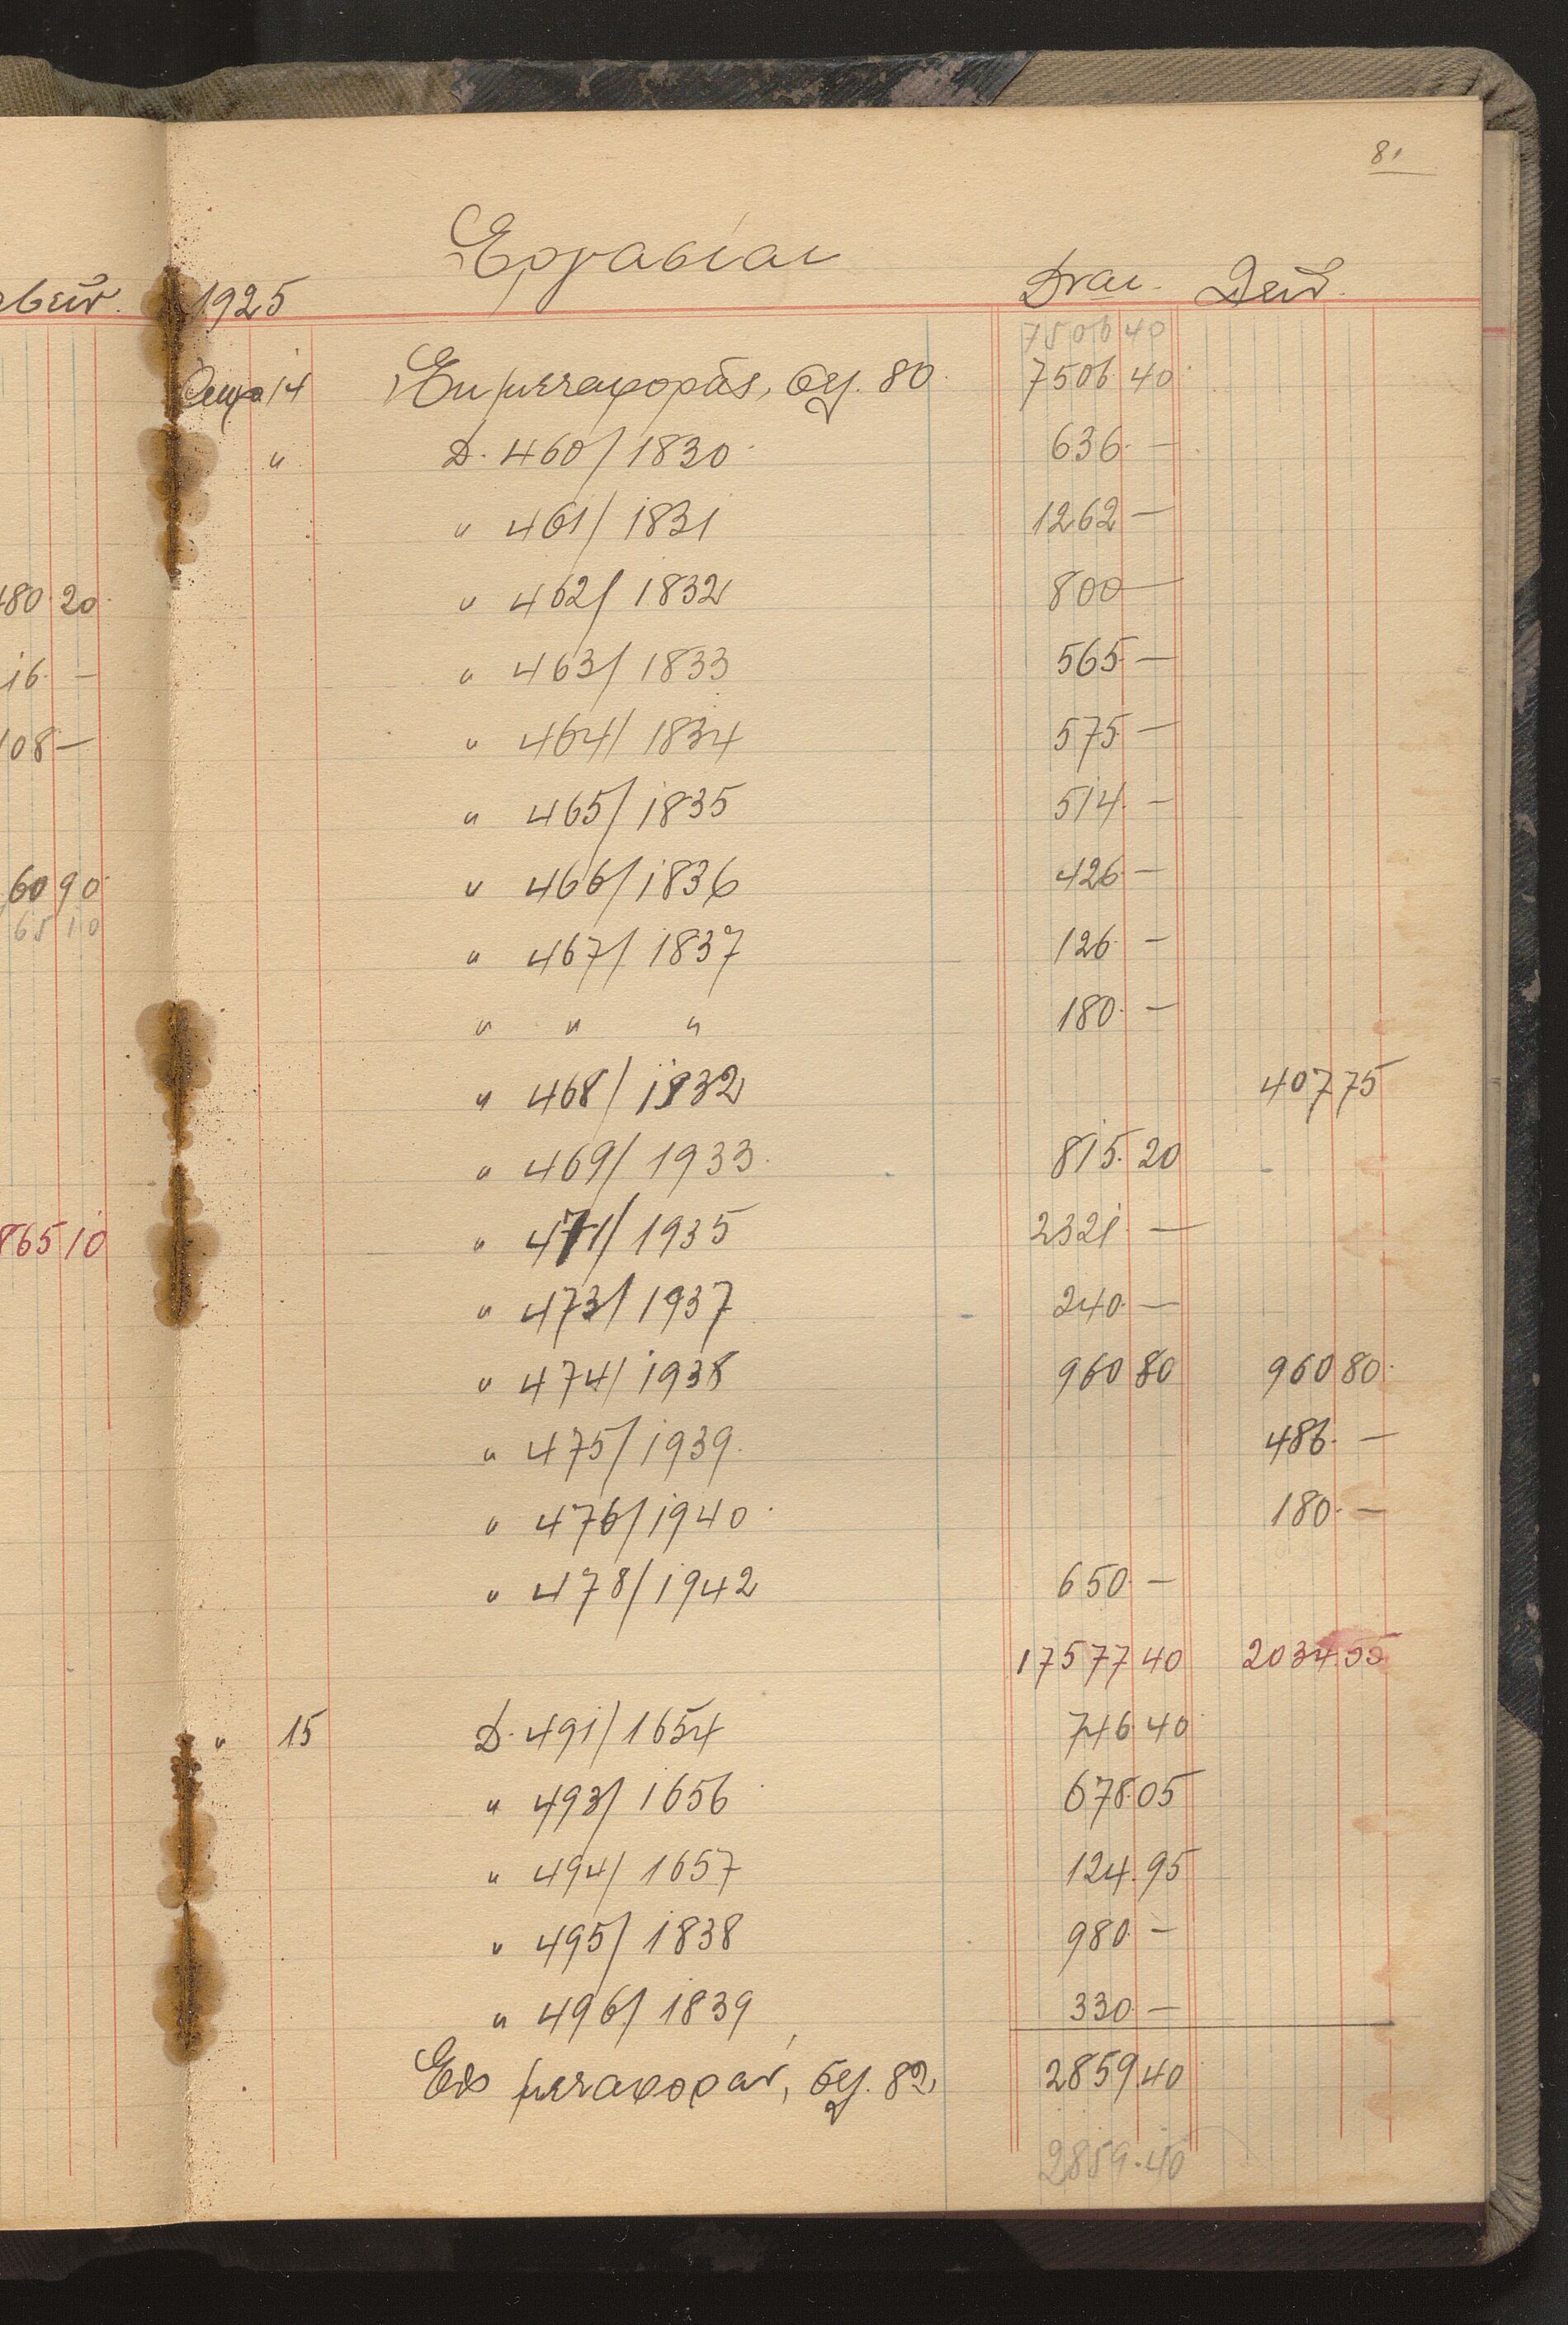 81
Εργασίαι
1925 Δναι. Δειν.
7506 40
14 Εκ μεταφοράς, σελ. 80 7506 40
" Δ. 460/1830 636. —
" 461/1831 1262 —
" 462/1832 800 —
" 463/1833 565 —
" 464/1834 575 —
" 465/1835 514. —
" 466/1836 426 —
" 467/1837 126 —
" " " 180. —
" 468/1832 407 75
" 469/1933. 815. 20
" 471/1935 2321. —
" 473/1937 240. —
" 474/1938 960 80 960 80.
" 475/1939. 486. —
" 476/1940. 180. —
" 478/1942 650. —
17577 40 2034 55
" 15 Δ. 491/1654 746. 40
" 493/1656 678. 05
" 494/1657 124. 95
" 495/1838 980. —
" 496/1839 330 —
Εις μεταφοράν, σελ. 82 2859. 40
2859. 40
480. 20.
16. —
108 —
60 90
65 10
865 10